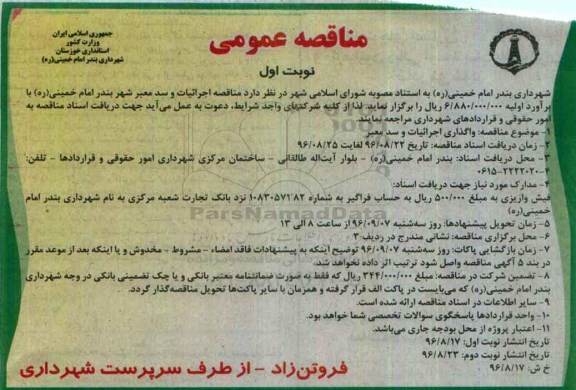 جمهوری اسلامی ایران
وزارت کشور
استانداری خوزستان
شهرداری بندر امام خمینی(ره)
مناقصه عمومی
نوبت اول
شهرداری بندر امام خمینی(ره) به استناد مصوبه شورای اسلامی شهر در نظر دارد مناقصه اجرائیات و سد معبر شهر بندر امام خمینی(ره) با
برآورد اولیه ۶/۸۸۰/۰۰۰/۰۰۰ ریال را برگزار نماید. لذا از کلیه شرکتهای واجد شرایط، دعوت به عمل می‌آید جهت دریافت اسناد مناقصه به
امور حقوقی و قراردادهای شهرداری مراجعه نمایند.
۱- موضوع مناقصه: واگذاری اجرائیات و سد معبر
۲- زمان دریافت اسناد مناقصه: تاریخ ۹۶/۰۸/۲۲ لغایت ۹۶/۰۸/۲۵
۳- محل دریافت اسناد: بندر امام خمینی(ره) - بلوار آیت‌اله طالقانی - ساختمان مرکزی شهرداری امور حقوقی و قراردادها - تلفن:
۰۶۱۵-۲۲۲۲۰۲۰-۴
۴- مدارک مورد نیاز جهت دریافت اسناد:
فیش واریزی به مبلغ ۵۰۰/۰۰۰ ریال به حساب فراگیر به شماره ۱۰۸۳۰۵۷۱۸۲ نزد بانک تجارت شعبه مرکزی به نام شهرداری بندر امام
خمینی(ره)
۵- زمان تحویل پیشنهادها: روز سه‌شنبه ۹۶/۰۹/۰۷ از ساعت ۸ الی ۱۳
۶- محل برگزاری مناقصه: نشانی مندرج در ردیف ۳
۷- زمان بازگشایی پاکات: روز سه‌شنبه ۹۶/۰۹/۰۷ توضیح اینکه به پیشنهادات فاقد امضاء - مشروط - مخدوش و یا اینکه بعد از موعد مقرر
در بند ۵ آگهی مناقصه واصل شود ترتیب اثر داده نخواهد شد.
۸- تضمین شرکت در مناقصه: مبلغ ۳۴۴/۰۰۰/۰۰۰ ریال که فقط به صورت ضمانتنامه معتبر بانکی و یا چک تضمینی بانکی در وجه شهرداری
بندر امام خمینی(ره) که می‌بایست در پاکت الف قرار گرفته و همزمان با سایر پاکت‌ها تحویل مناقصه‌گذار گردد.
۹- سایر اطلاعات در اسناد مناقصه ارائه شده است.
۱۰- واحد قراردادها پاسخگوی سوالات تخصصی شما خواهد بود.
۱۱- اعتبار پروژه از محل بودجه جاری می‌باشد.
تاریخ انتشار نوبت اول: ۹۶/۸/۱۷
تاریخ انتشار نوبت دوم: ۹۶/۸/۲۳
خ ش: ۹۶/۸/۱۷
فروتن‌زاد - از طرف سرپرست شهرداری
ParsNamadData